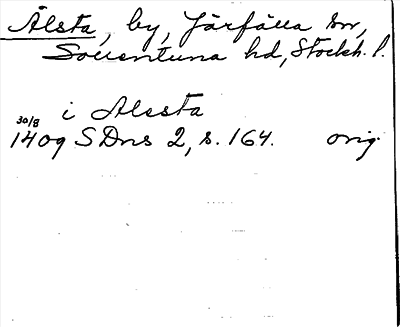 Älsta, by, Järfälla sn,
Sollentuna hd, Stockh. l.
i Alssta
30/8
1409 SDns 2, s. 164. orig.